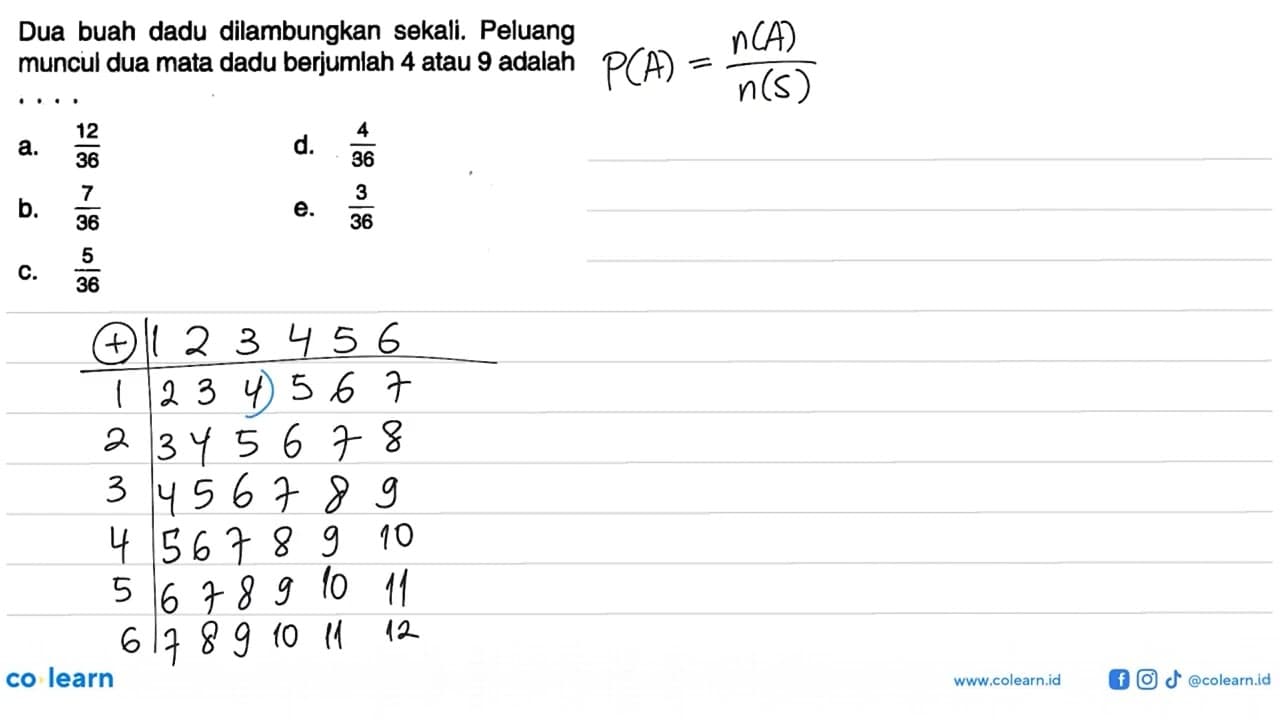 Dua buah dadu dilambungkan sekali. Peluang
muncul dua mata dadu berjumlah 4 atau 9 adalah
. . . .
P(A) = n(A)/n(S)
a. 12/36
d. 4/36
b. 7/36
e. 3/36
c. 5/36
+ 1 2 3 4 5 6
1 2 3 4 5 6 7
2 3 4 5 6 7 8
3 4 5 6 7 8 9
4 5 6 7 8 9 10
5 6 7 8 9 10 11
6 7 8 9 10 11 12
co learn
www.colearn.id
@colearn.id